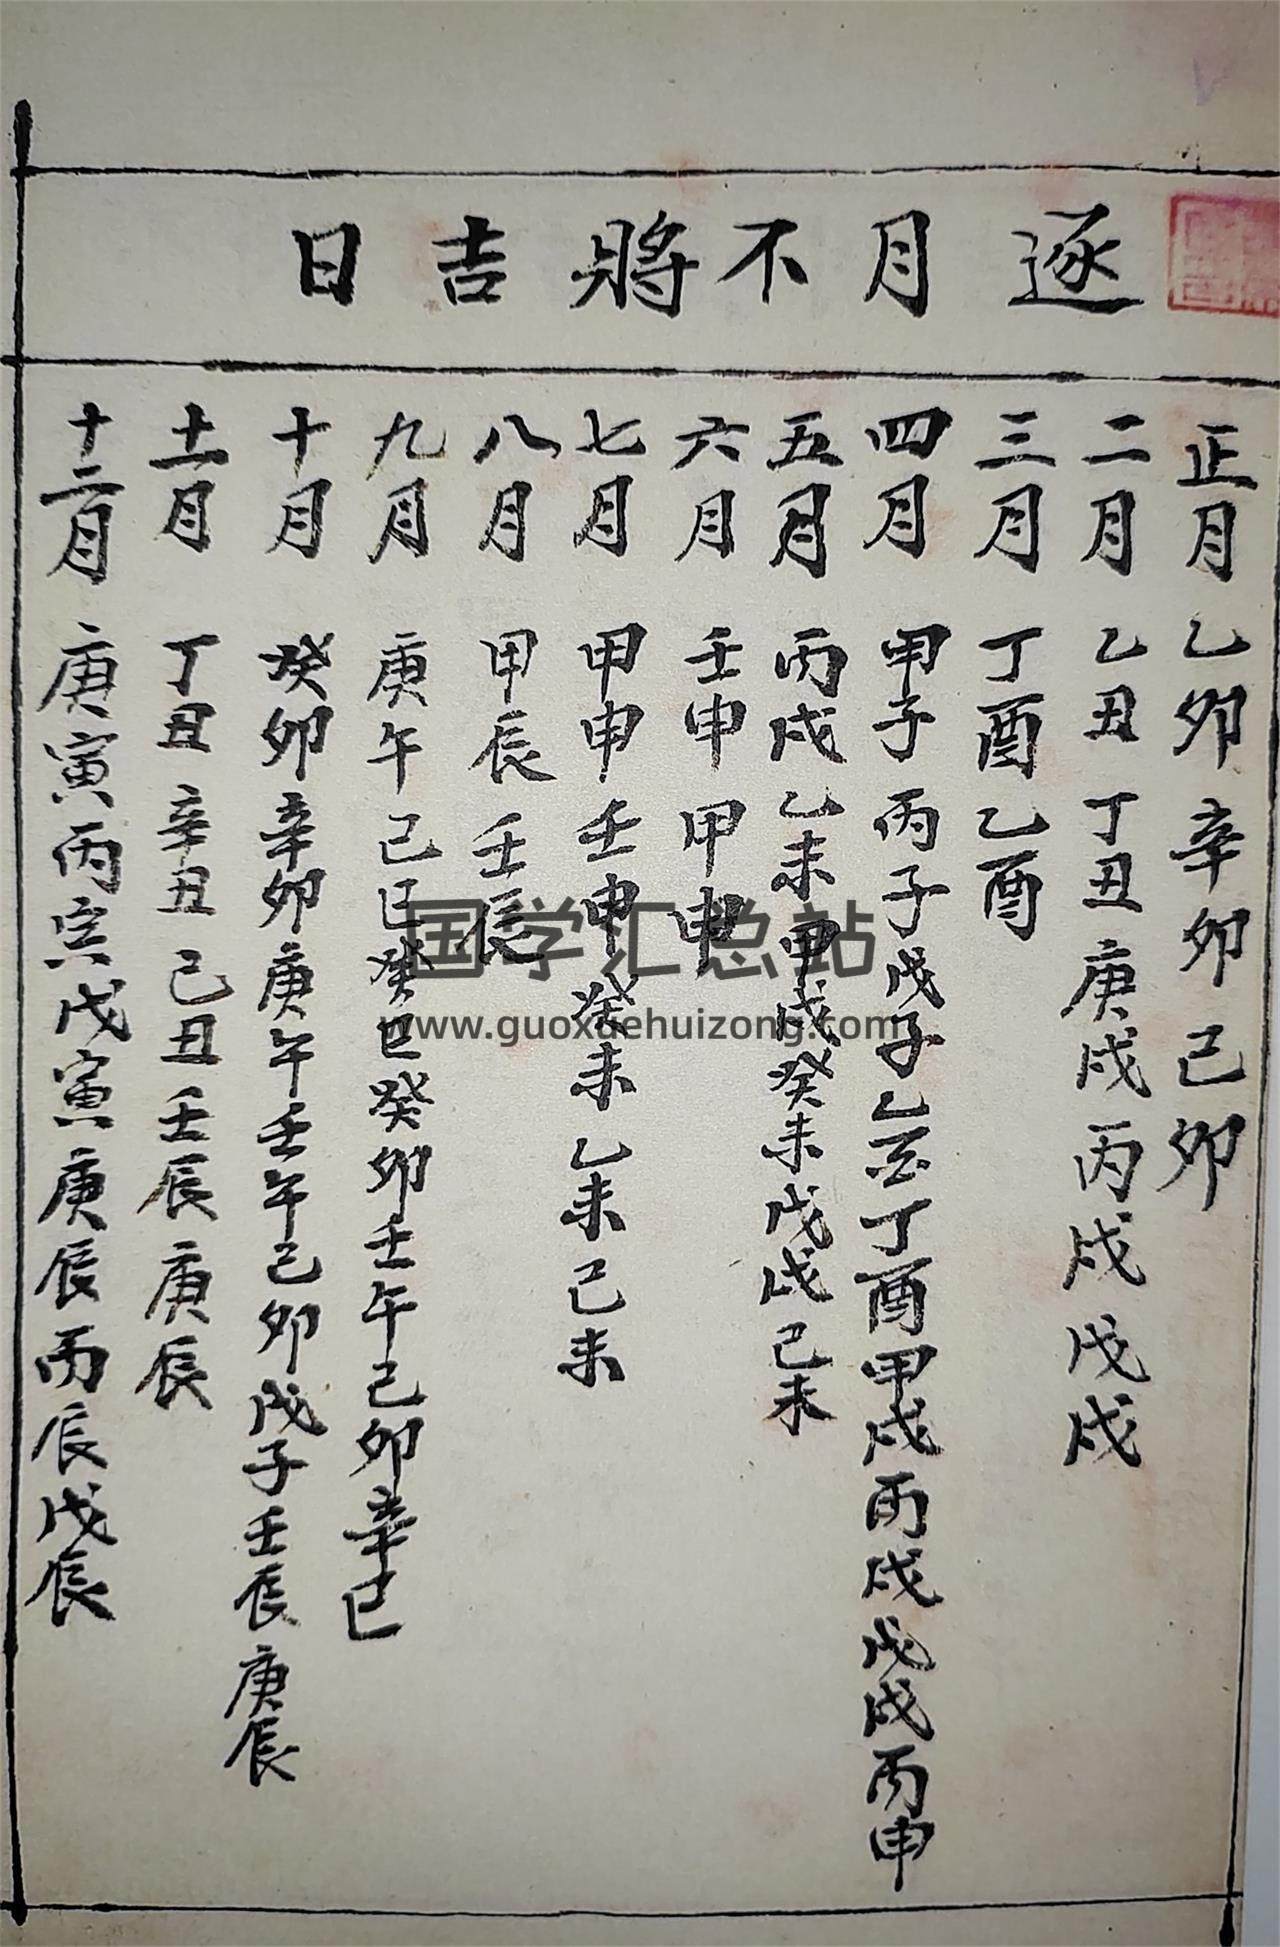 逐月不將吉日
正月乙卯辛卯己卯
二月乙丑丁丑庚戌丙戌戊戌
三月丁酉乙酉
四月甲子丙子戊子乙丁酉甲戌丙戌戊戌丙申
五月丙戌乙未甲戌癸未戊戌己未
六月壬申甲申
七月甲申壬申癸未乙未己未
八月甲辰壬辰
九月庚午己巳癸巳癸卯壬午己卯辛巳
十月癸卯辛卯庚午壬午己卯戊子壬辰庚辰
十一月丁丑辛丑己丑壬辰庚辰
十二月庚寅丙寅戊寅庚辰丙辰戊辰
国学汇总站
www.guoxuehuizong.com